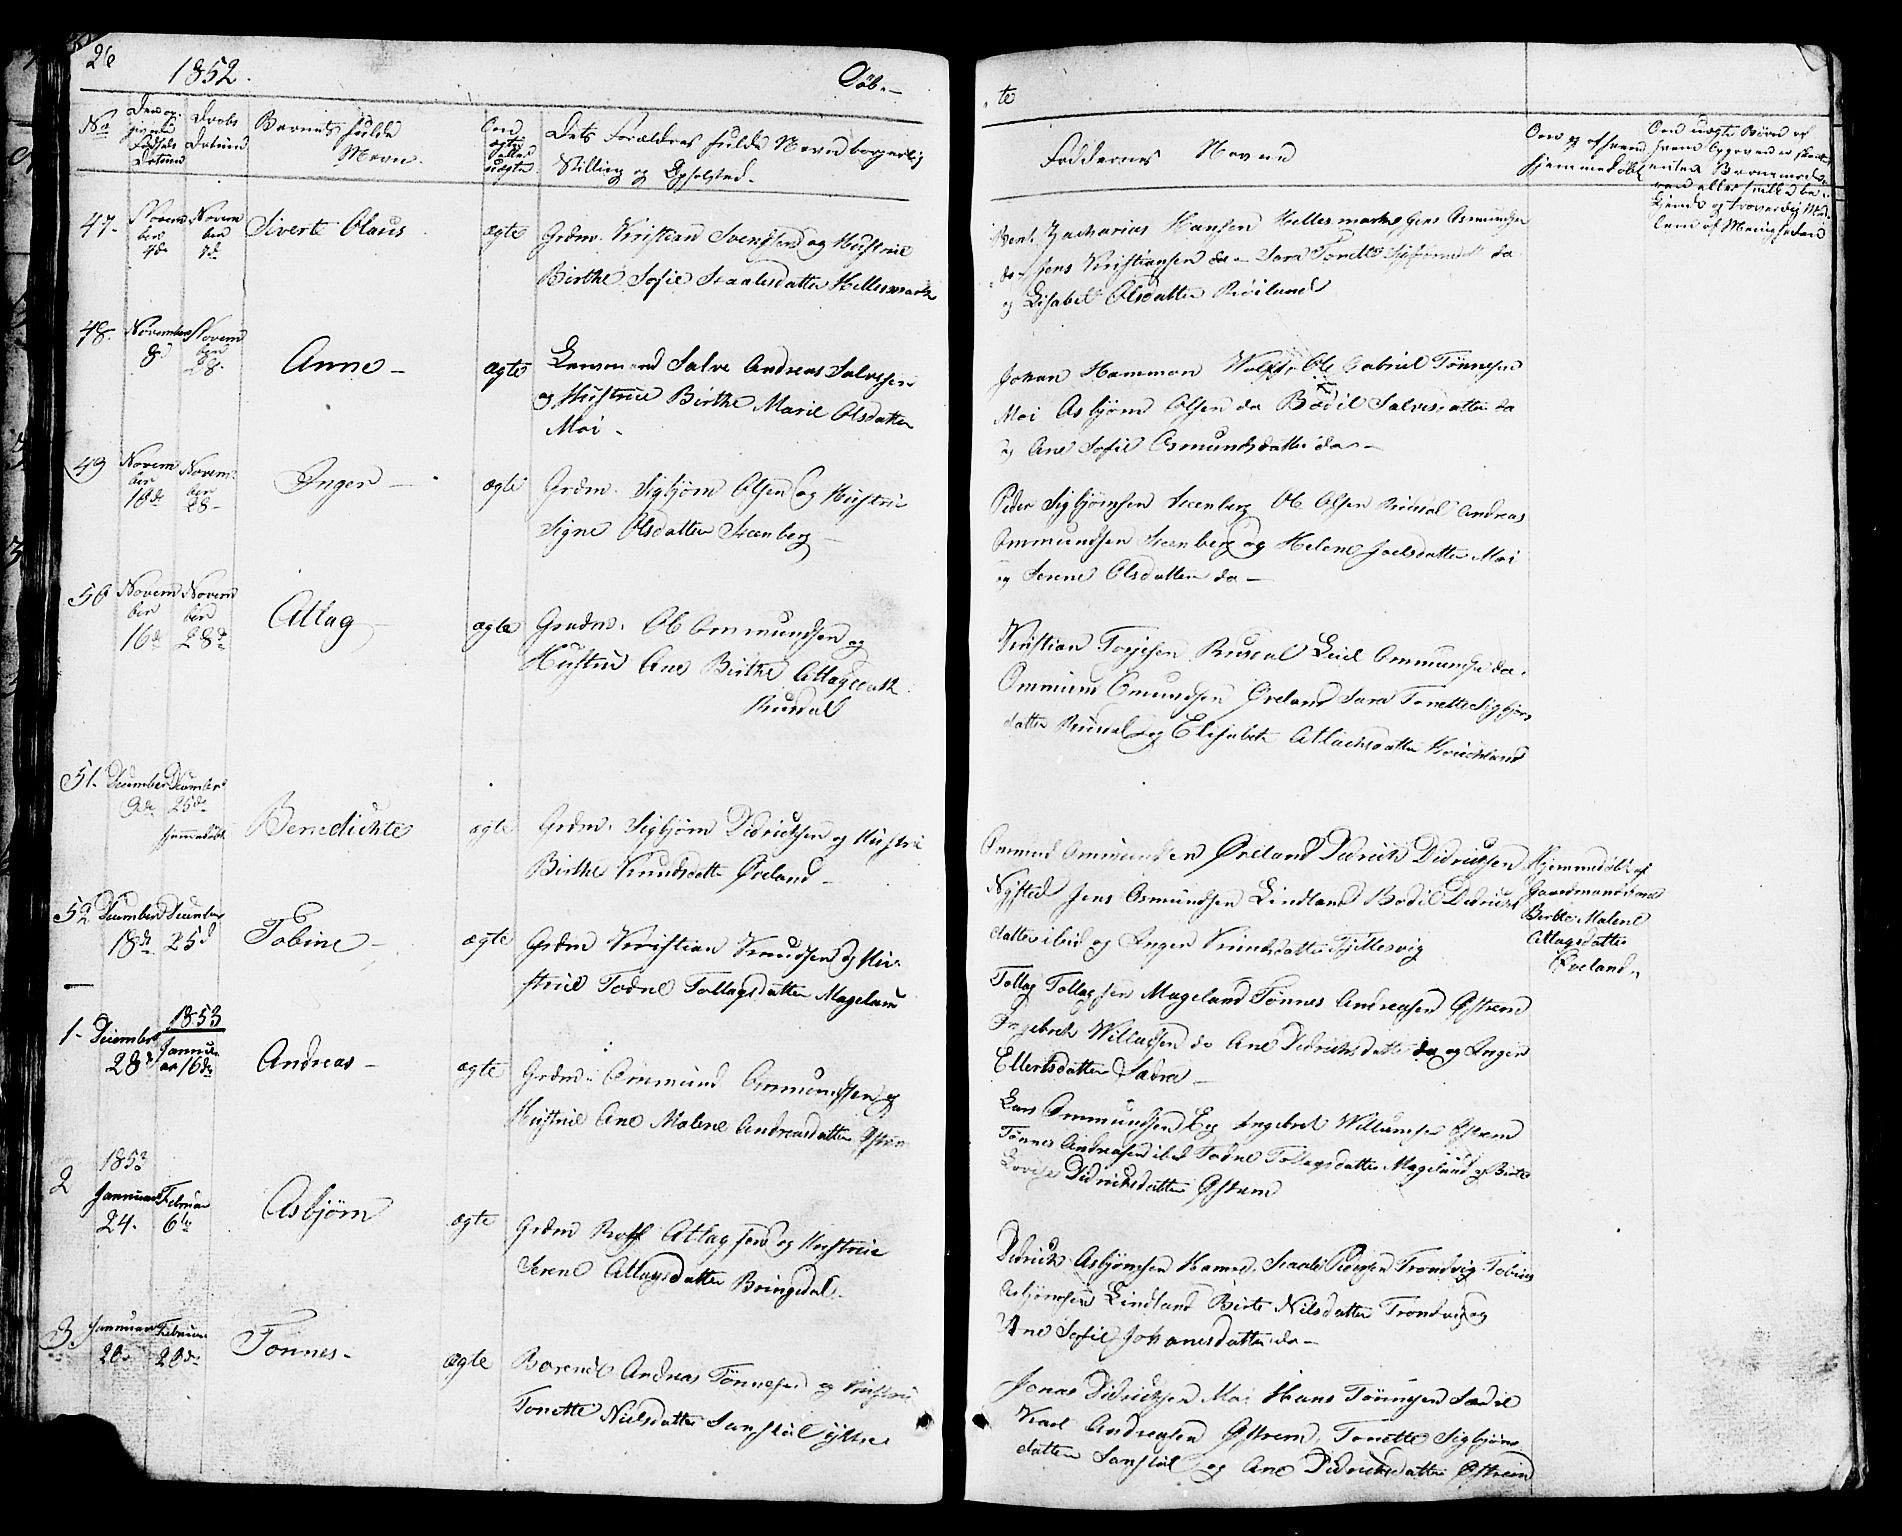 26
1852.
Døb-
te
No
Den op-
givne
Fødsels
Datum
Daabs
Datum
Barnets fulde
Navn.
Om
ægte
eller
uægte
Dets Forældres fulde Navne borgerlig
Stilling og Opholsted.
Faddernes Navne
Om og af hvem
hjemmedøbt
47. Novem
ber
4de
Novem
ber
7de
Sivert Olaus
ægte
Grdm. Kristian Svendsen og Hustrue
Birthe Sofie Staalesdatter Hellesmark
Zacharias Hansen Hellesmark Jens Osmundsen
do- Jens Kristiansen do- Sara Tonette Sigbjørnsd do
og Elisabet Olsdatter Røiland
48. November
8.
Novem
ber
28.
Anne-
ægte
Lensmand Salve Andreas Salvesen
og Hustrue Birthe Marie Olsdatter
Moi-
Johan Hammon Gabriel Tønnesen
Moi Asbjørn Olsen do Bodil Salvesdatter do
og Ane Sofie Osmundsdatter do-
49 Novem
ber
18de
Novem-
ber
28-
Inger-
ægte
Grdm. Sigbjørn Olsen og Hustrue
Signe Olsdatter Steenberg-
Peder Sigbjørnsen Steenberg Ole Olsen Rusdal Andreas
Ommundsen Steenberg og Helene Joelsdatter Moi
og Serene Olsdatter do-
50 Novem
ber
16de
Novem
ber
28de
Atlag-
ægte
Grdm. Ole Ommundsen og
Hustrue Ane Birthe Atlagsdatt.
Rusdal
Kristian Torjesen Rusdal Emil Ommundse do.
Ommund Omundsen Øveland Sara Tonette Sigbjørns
datter Rusdal og Elisabeth Atlachsdatter
51. December
9de
December
25de
hjemmedøbt
Benedichte
ægte
Grdm. Sigbjørn Didrichsen og Hustrue
Birthe Knudsdatte Øveland-
Ommund Ommundsen Øveland Didrich Didrichsen
Nysted Jens Osmundsen Lindland Bodil Didrichs
datter ibid og Inger Knudsdatter
Hjemmedøbt af
Gaardmandskone
Birthe Malene
Atlagsdatter
Øveland.
52 December
18de
December
25d
Tobine-
ægte
Grdm Kristian Knudsen og Hu-
strue Todne Tollagsdatter Mageland
Tollag Tollagsen Mageland Tønnes Andreasen Østrem
Ingebreth Willadsen do Ane Didrichsdatter do og Inger
Ellertsdatter Sædra-
1- December
28de
1853
Januu-
ar 16de
Andreas-
ægte
Grdm. Ommund Ommundsen og
Hustrue Ane Malene Andreasdatter Østrem
Lars Ommundsen Eeg Ingebret Willumsen Østrem
Tønnes Andreasen ibid Todne Tollagsdatter Mageland og Birte
Lovise Didrichsdatter Østrem
2
1853
Januuar
24.
Februar
6te
Asbjørn
ægte
Grdm Rolf Atlagsen og Hustrue
Serene Atlagsdatter Bringedal-
Didrich Asbjørnsen Hamre. Staale Pedersen Trondvig Tobias
Asbjørnsen Lindland Birte Nilsdatter Trondvig og
Ane Sofie Johanesdatter do-
3. Januuar
20.
Februar
20de
Tønnes-
ægte
Barend Andreas Tønnesen og Hustrue
Tonette Nielsdatter Sanstøl yttre
Jonas Didrichsen Moi Hans Tønnesen
Karl Andreasen Østrem, Tonette Sigbjørns
datter Sanstøl og Ane Didrichsdatter Østrem